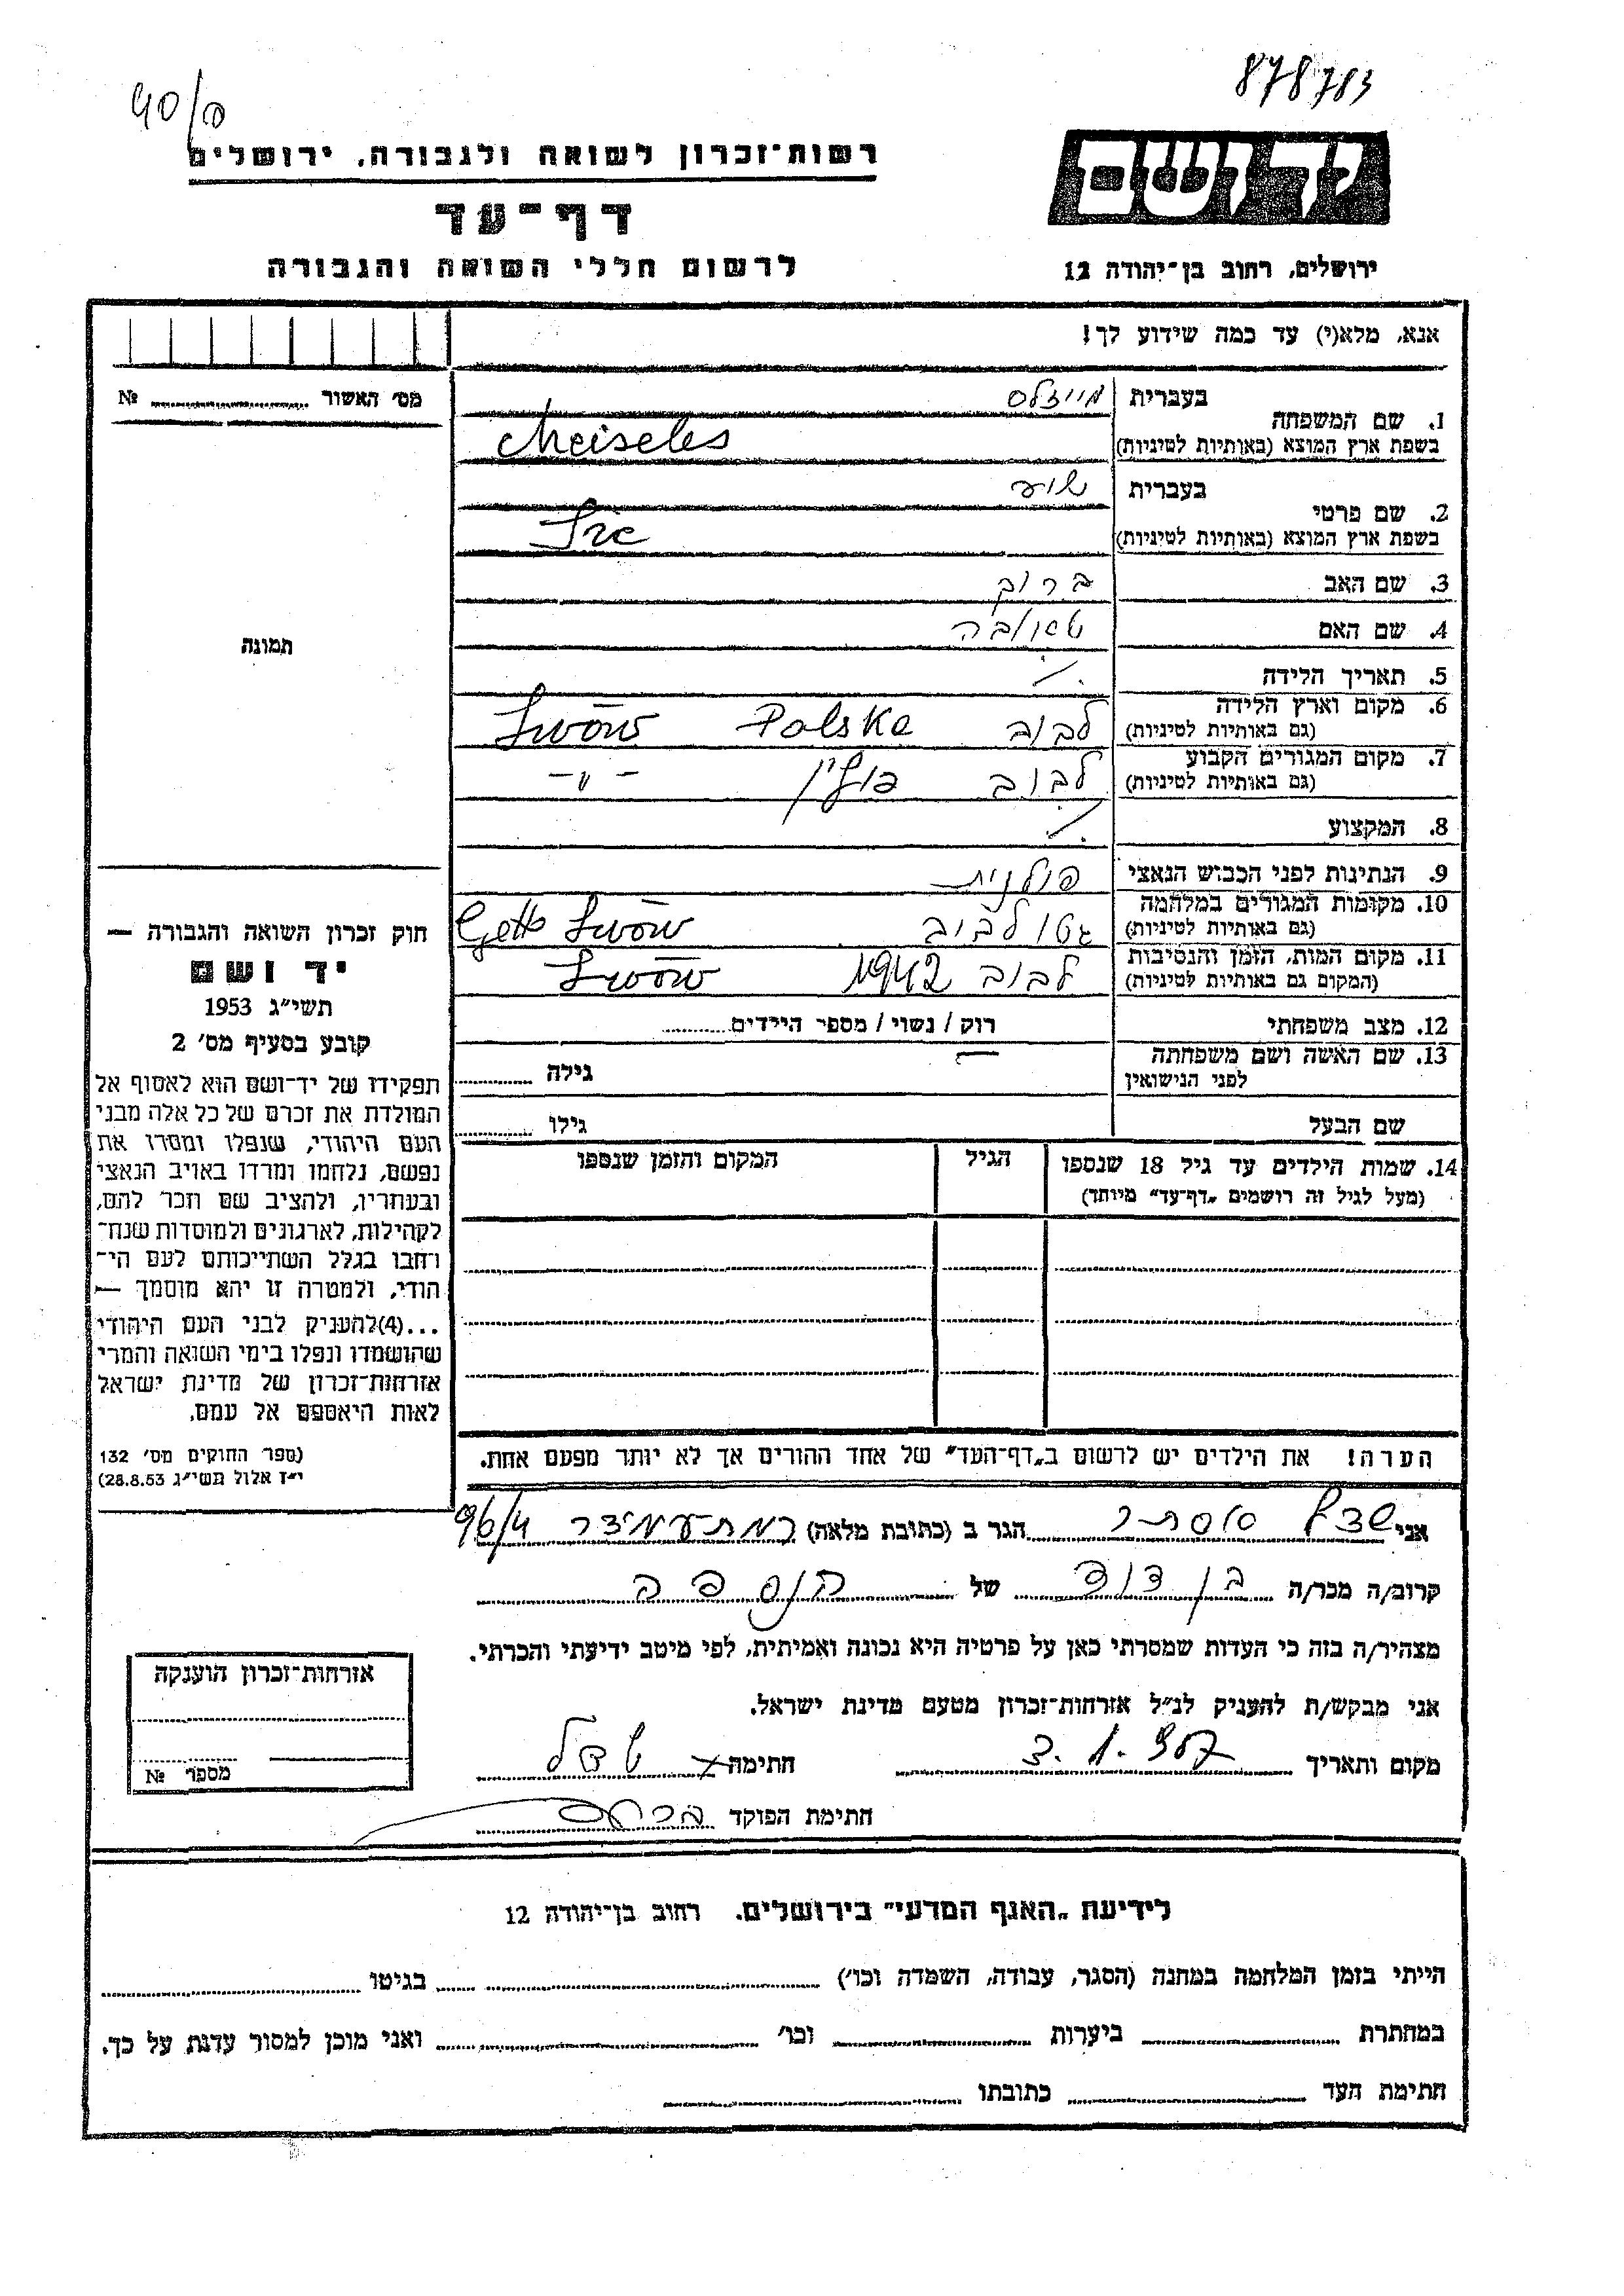 878783
40/
יד ושם
רשות־זכרון לשואה ולגבורה, ירושלים
דף־עד
לרשום חללי השואה והגבורה
ירושלים, רחוב בן־יהודה 12
אנא, מלא(י) עד כמה שידוע לך!
מס׳ האשור № 
1. שם המשפחה
בעברית מייזלס
בשפת ארץ המוצא (באותיות לטיניות) Meiseles
2. שם פרטי
בעברית
בשפת ארץ המוצא (באותיות לטיניות)
3. שם האב ברוך
4. שם האם טאובה
תמונה
5. תאריך הלידה ./.
6. מקום וארץ הלידה
(גם באותיות לטיניות) לבוב Polska Lwów
7. מקום המגורים הקבוע
(גם באותיות לטיניות) לבוב פולין -"-
8. המקצוע ./.
9. הנתינות לפני הכבוש הנאצי פולנית
10. מקומות המגורים במלחמה
(גם באותיות לטיניות) גטו לבוב Getto Lwów
11. מקום המות, הזמן והנסיבות
(המקום גם באותיות לטיניות) לבוב 1942 Lwów
12. מצב משפחתי רוק / נשוי / מספר הילדים
13. שם האשה ושם משפחתה
לפני הנישואין — גילה
שם הבעל גילו
14. שמות הילדים עד גיל 18 שנספו הגיל המקום והזמן שנספו
(מעל לגיל זה רושמים „דף־עד״ מיוחד)
הערה! את הילדים יש לרשום ב„דף־העד״ של אחד ההורים אך לא יותר מפעם אחת.
חוק זכרון השואה והגבורה —
יד ושם
תשי״ג 1953
קובע בסעיף מס׳ 2
תפקידו של יד־ושם הוא לאסוף אל
המולדת את זכרם של כל אלה מבני
העם היהודי, שנפלו ומסרו את
נפשם, נלחמו ומרדו באויב הנאצי
ובעוזריו, ולהציב שם וזכר להם,
לקהילות, לארגונים ולמוסדות שנח־
רבו בגלל השתייכותם לעם הי־
הודי, ולמטרה זו יהא מוסמך —
...(4)להעניק לבני העם היהודי
שהושמדו ונפלו בימי השואה והמרי
אזרחות־זכרון של מדינת ישראל
לאות היאספם אל עמם.
(ספר החוקים מס׳ 132
י״ז אלול תשי״ג 28.8.53)
אני אסתר הגר ב (כתובת מלאה) 96/4
קרוב/ה מכר/ה בן דוד של הנספה
מצהיר/ה בזה כי העדות שמסרתי כאן על פרטיה היא נכונה ואמיתית, לפי מיטב ידיעתי והכרתי.
אני מבקש/ת להעניק לנ״ל אזרחות־זכרון מטעם מדינת ישראל.
מקום ותאריך 3.1.957 חתימה x
חתימת הפוקד
אזרחות־זכרון הוענקה
מספר №
לידיעת „האגף המדעי״ בירושלים. רחוב בן־יהודה 12
הייתי בזמן המלחמה במחנה (הסגר, עבודה, השמדה וכו׳) בגיטו
במחתרת ביערות וכו׳ ואני מוכן למסור עדות על כך.
חתימת העד כתובתו